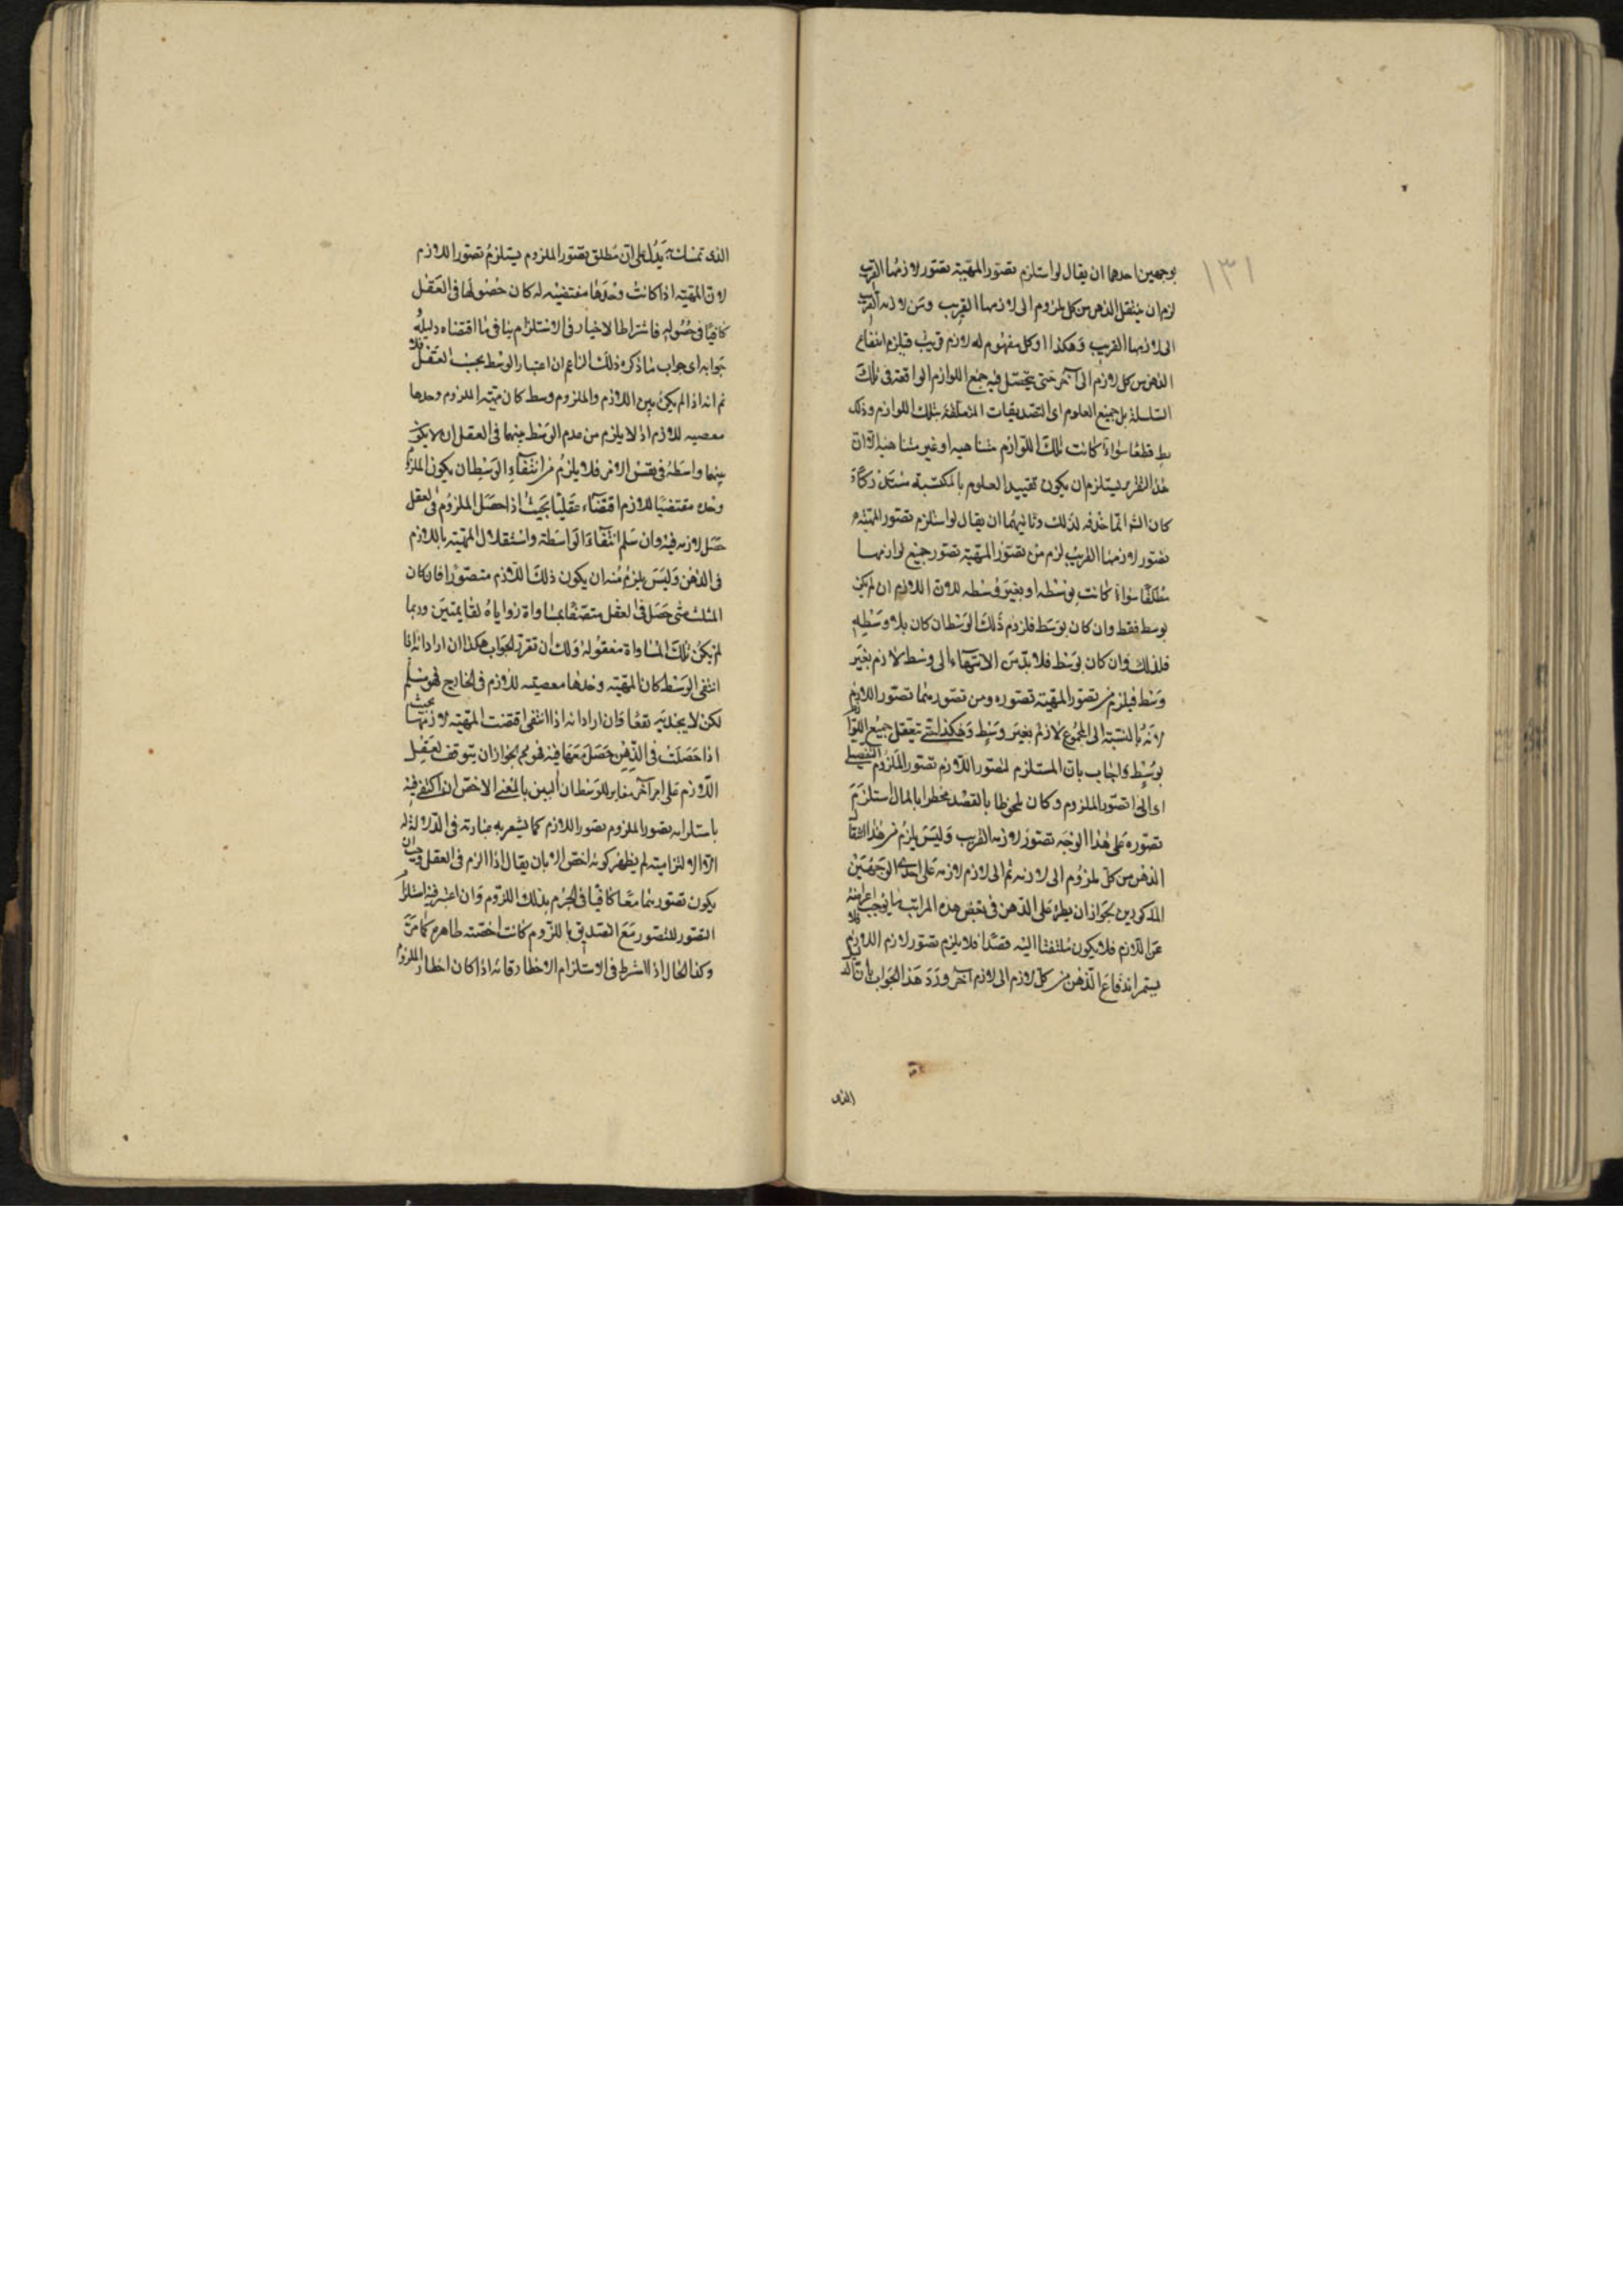 ١٣١
بوجهين احدهما ان يقال لو استلزم تصور المهية تصور لازمها القريب
لزم ان ينتقل الذهن من كل ملزوم الى لازمها القريب ومن لازمه القريب
الى لازمها القريب وهكذا وكل مفهوم له لازم قريب فيلزم اندفاع
الذهن من كل لازم الى آخر حتى يتحصل فيه جميع اللوازم الواقعة فى تلك
السلسلة بل جميع العلوم اى التصديقات المتعلقة بتلك اللوازم وذلك
بط قطعا سواء كانت تلك اللوازم متناهية او غير متناهية الا ان
هذا التقرير يستلزم ان يكون تقييد العلوم بالمكتسبة مستدركا
كان الشه انما حذفه لذلك وثانيهما ان يقال لو استلزم تصور المهية
تصور لازمها القريب لزم من تصور المهية تصور جميع لوازمها
مطلقا سواء كانت بوسط او بغير وسط لان اللازم ان لم يكن
بوسط فقط وان كان بوسط فلزوم ذلك الوسط ان كان بلا وسط
فلذلك وان كان بوسط فلا بد من الانتهاء الى وسط لازم بغير
وسط فيلزم من تصور المهية تصوره ومن تصورهما تصور اللازم
لانه بالنسبة الى المجموع لازم بغير وسط وهكذا حتى يتعقل جميع اللوازم
بوسط واجاب بان المستلزم لتصور اللازم تصور الملزوم التفصيلى
اى اذا تصور الملزوم وكان ملحوظا بالقصد مخطرا بالبال استلزم
تصوره على هذا الوجه تصور لازمه القريب وليس يلزم من هذا انتقال
الذهن من كل ملزوم الى لازمه ثم الى لازم لازمه على احدى الوجهين
المذكورين لجواز ان يطرء على الذهن فى بعض هذه المراتب ما يوجب اعراضه
عن اللازم فلا يكون ملتفتا اليه قصدا فلا يلزم تصور لازم اللازم فلا
يستمر اندفاع الذهن من كل لازم الى لازم آخر ورد هذا الجواب بان الدليل
الذى
الذى تمسك به يدل على ان مطلق تصور الملزوم يستلزم تصور اللازم
لان المهية اذا كانت وحدها مقتضية له كان حصولها فى العقل
كافيا فى حصوله فاشتراط الاخبار فى الاستلزام ينافى ما اقتضاه دليله
جوابه اى جواب ما ذكره ذلك الزاعم ان اعتبار الوسط بحسب العقل فلا
نم انه اذا لم يكن بين اللازم والملزوم وسط كان مهية الملزوم وحدها
مقتضيه للازم اذ لا يلزم من عدم الوسط بينهما فى العقل ان لا يكون
بينهما واسطة فى نفس الامر فلا يلزم من انتفاء الوسط ان يكون الملزوم
وحده مقتضيا للازم اقتضاء عقليا بحيث اذا حصل الملزوم فى العقل
حصل لازمه فيه وان سلم انتفاء الواسطة واستقلال المهية باللازم
فى الذهن وليس يلزم منه ان يكون ذلك اللازم متصورا فان كان
المثلث متى حصل فى العقل متصفا بمساواة زواياه لقائمتين وربما
لم يكن تلك المساواة معقوله ولك ان تقرر الجواب هكذا ان اراد انه اذا
انتفى الوسط كان المهية وحدها مقتضية للازم فى الخارج فهو مسلم
لكن لا يجديه نفعا وان اراد انه اذا انتفى اقتضت المهية لازمها بحيث
اذا حصلت فى الذهن حصل معها فيه فهو مم لجواز ان يتوقف تعقل
اللازم على امر آخر مغاير للوسط ان البين بالمعنى الاخص ان اكتفى فيه
باستلزام تصور الملزوم تصور اللازم كما يشعر به عبارته فى الدلالة
الالتزامية لم يظهر كونه اخص الا بان يقال اذا لزم فى العقل وجب ان
يكون تصورهما معا كافيا فى الجزم بذلك اللزوم وان اعتبر فيه استلزام
التصور للتصور مع التصديق باللزوم كانت اخصيته ظاهرة كما مر
وكذا الحال اذا اشترط فى الاستلزام الاخطار فانه اذا كان اخطار الملزوم